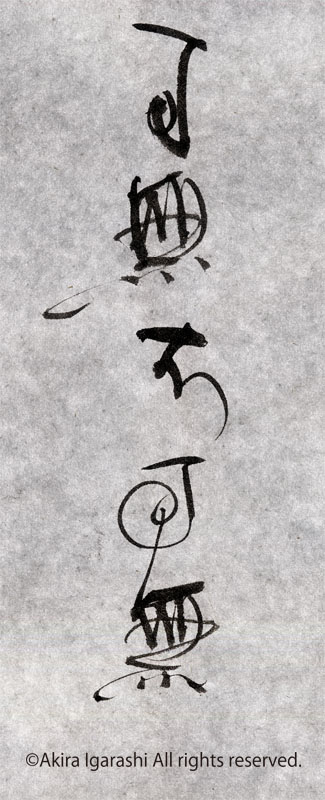 可無不可無
©Akira Igarashi All rights reserved.